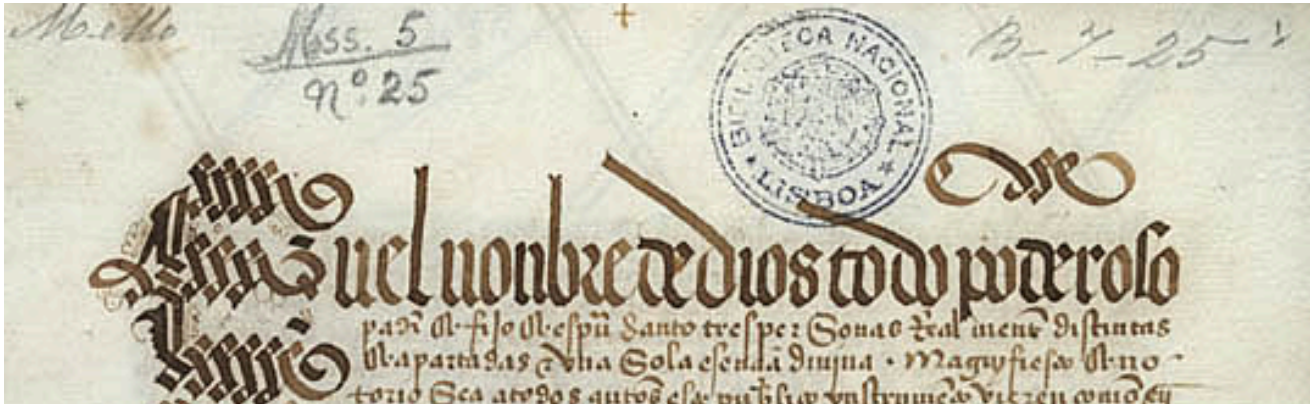 Mello
Mss. 5
Nº 25
B-7-25
BIBLIOTECA NACIONAL
LISBOA
En el nonbre de dios todo poderoso
fijo santo tres personas Real mente distintas
apartadas una Sola esencia divina. Magnifiesto no
torio Sea a todos quantos este publico ynstrumento vieren como en